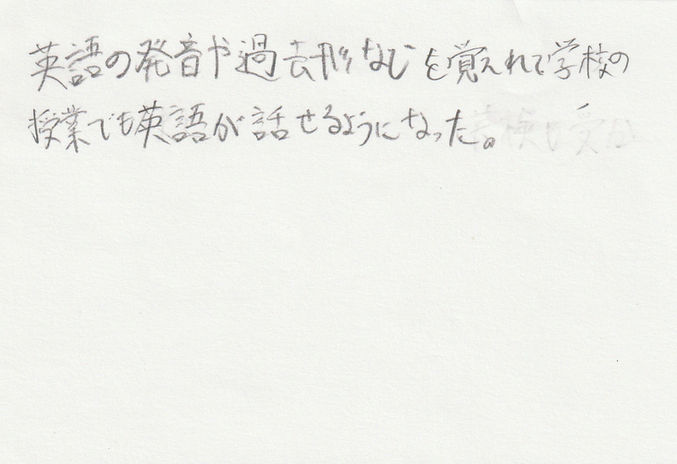 英語の発音や過去形などを覚えれて学校の
授業でも英語が話せるようになった。